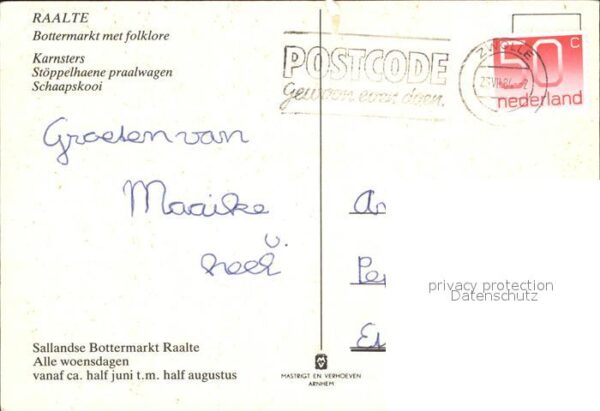 RAALTE
Bottermarkt met folklore
Karnsters
Stöppelhaene praalwagen
Schaapskooi
POSTCODE
gewoon even doen.
ZWOLLE
50 c
nederland
Groeten van
Maaike
v.
privacy protection
Datenschutz
Sallandse Bottermarkt Raalte
Alle woensdagen
vanaf ca. half juni t.m. half augustus
MASTRIGT EN VERHOEVEN
ARNHEM